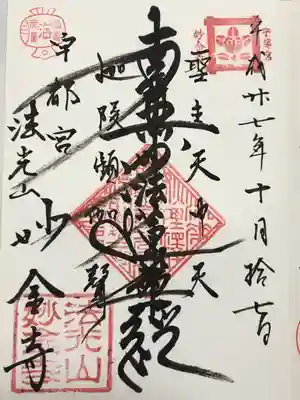 平成廿七年十月拾七日
聖主天中天
南無妙法蓮華経
迦陵頻伽聲
宇都宮
法光山 妙金寺
法光山
妙金寺